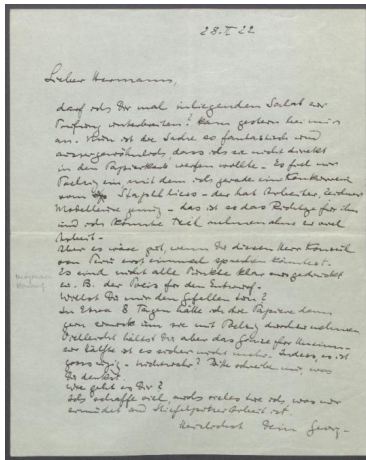 28.I 22
Lieber Hermann,
darf ich Dir mal inliegenden Salat zur
Prüfung unterbreiten? Kam gestern bei mir
an. Nun ist die Sache so fantastisch und
aussergewöhnlich, dass ich sie nicht direkt
in den Papierkorb werfen wollte. Es fiel mir
Poelzig ein mit dem ich gerade eine Konkurrenz
vom Stapel liess - der hat Arbeiter, Zeichner
Modelleure genug - das ist so das Richtige für ihn
und ich könnte Teil nehmen ohne zu viel
Arbeit -
Nur es wäre gut, wenn Du diesen Herr Konsul
von Peru erst einmal sprechen könntest.
Es sind nicht alle Punkte klar ausgedrückt
z. B. der Preis für den Entwurf.
Willst Du mir den Gefallen tun?
In etwa 8 Tagen hätte ich die Papiere dann
gern zurück um sie mit Poelzig
Vielleicht hältst Du aber das Ganze für
zur Hälfte ist es sicher nicht mehr. Indess, es ist
grosszügig - nichtwahr? Bitte schreibe mir, was
Du denkst.
Wie geht es Dir?
Ich schaffe viel, noch vieles was
ermüdet und Arbeit ist.
Herzlichst Dein Georg -